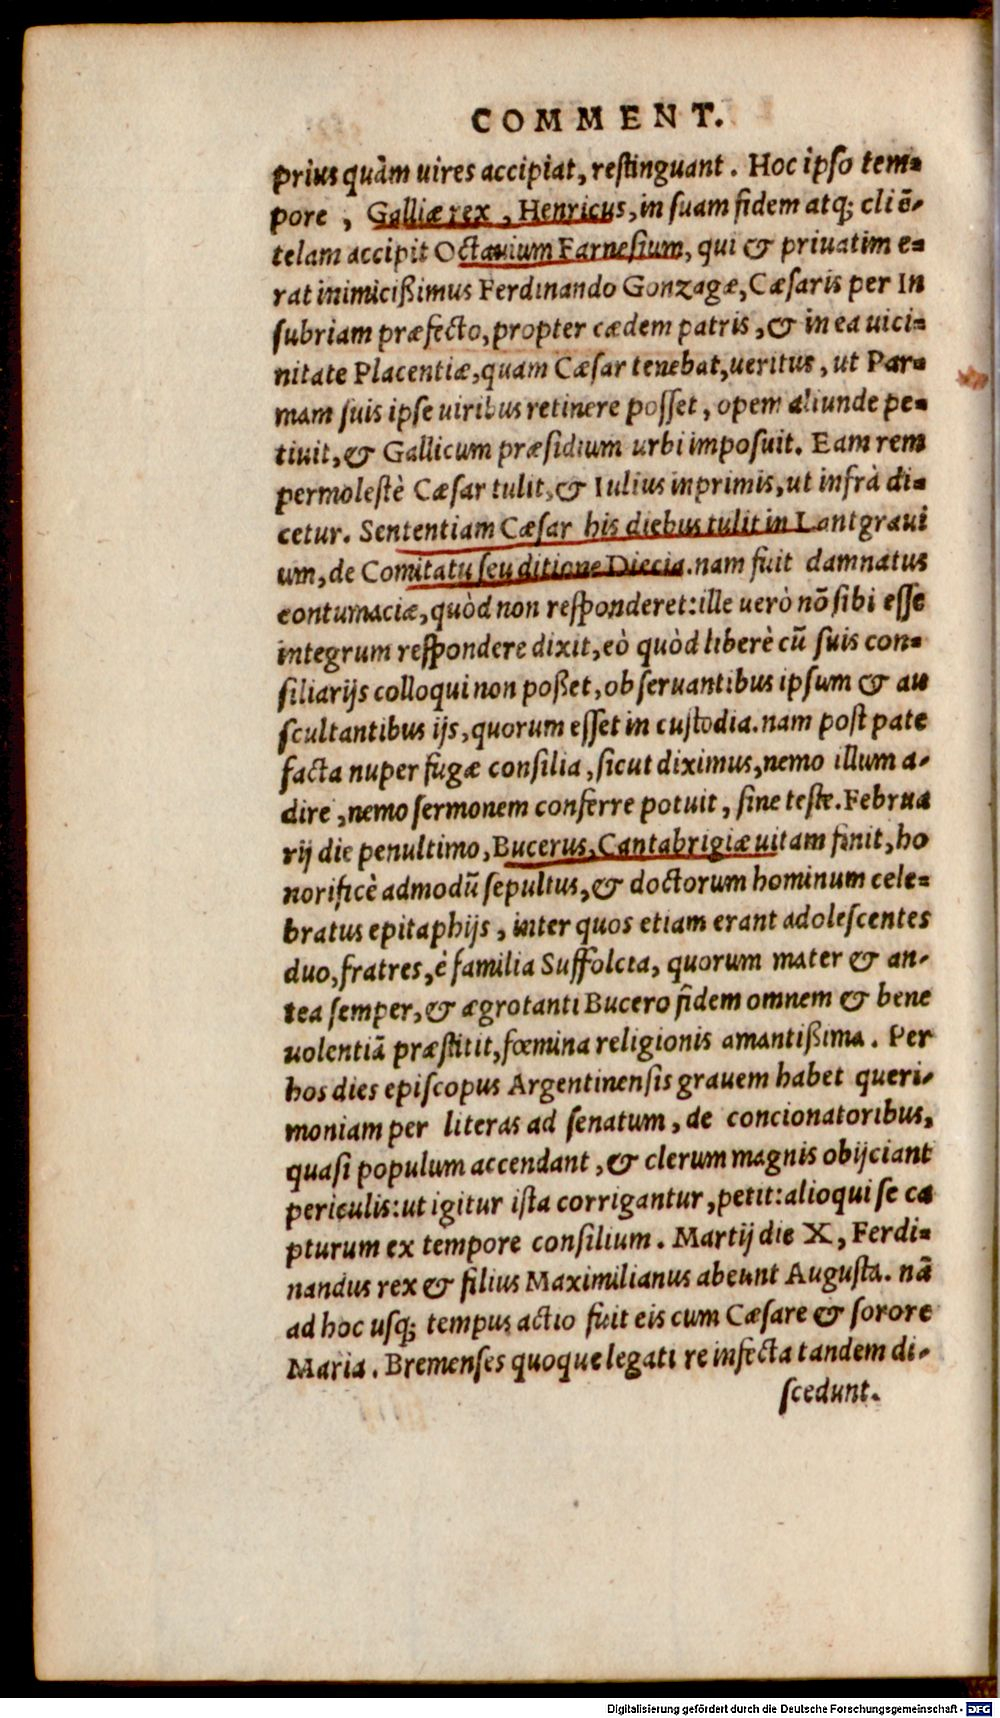 COMMENT.
prius quàm uires accipiat, restinguant. Hoc ipso tem=
pore, Galliæ rex, Henricus, in suam fidem atq; cliē-
telam accipit Octauium Farnesium, qui & priuatim e=
rat inimicißimus Ferdinando Gonzagæ, Cæsaris per In
subriam præfecto, propter cædem patris, & in ea uici=
nitate Placentiæ, quam Cæsar tenebat, ueritus, ut Par=
mam suis ipse uiribus retinere posset, opem aliunde pe=
tiuit, & Gallicum præsidium urbi imposuit. Eam rem
permolestè Cæsar tulit, & Iulius inprimis, ut infrà di=
cetur. Sententiam Cæsar his diebus tulit in Lantgraui
um, de Comitatu seu ditione Diecia. nam fuit damnatus
contumaciæ, quòd non responderet: ille uerò nō sibi esse
integrum respondere dixit, eò quòd liberè cū suis con=
siliarijs colloqui non poßet, obseruantibus ipsum & au
scultantibus ijs, quorum esset in custodia. nam post pate
facta nuper fugæ consilia, sicut diximus, nemo illum a-
dire, nemo sermonem conferre potuit, sine teste. Februa
rij die penultimo, Bucerus, Cantabrigiæ uitam finit, ho
norificè admodū sepultus, & doctorum hominum cele=
bratus epitaphijs, inter quos etiam erant adolescentes
duo, fratres, è familia Suffolcta, quorum mater & an-
tea semper, & ægrotanti Bucero fidem omnem & bene
uolentiā præstitit, fœmina religionis amantißima. Per
hos dies episcopus Argentinensis grauem habet queri-
moniam per literas ad senatum, de concionatoribus,
quasi populum accendant, & clerum magnis obijciant
periculis: ut igitur ista corrigantur, petit: alioqui se ca
pturum ex tempore consilium. Martij die X, Ferdi=
nandus rex & filius Maximilianus abeunt Augusta. nā
ad hoc usq; tempus actio fuit eis cum Cæsare & sorore
Maria. Bremenses quoque legati re infecta tandem di-
scedunt.
Digitalisierung gefördert durch die Deutsche Forschungsgemeinschaft - DFG